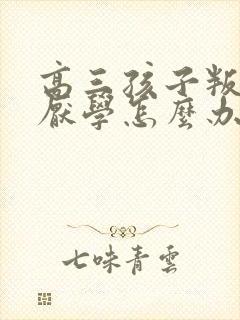 高三孩子叛
厭學怎麼办
七味青雲